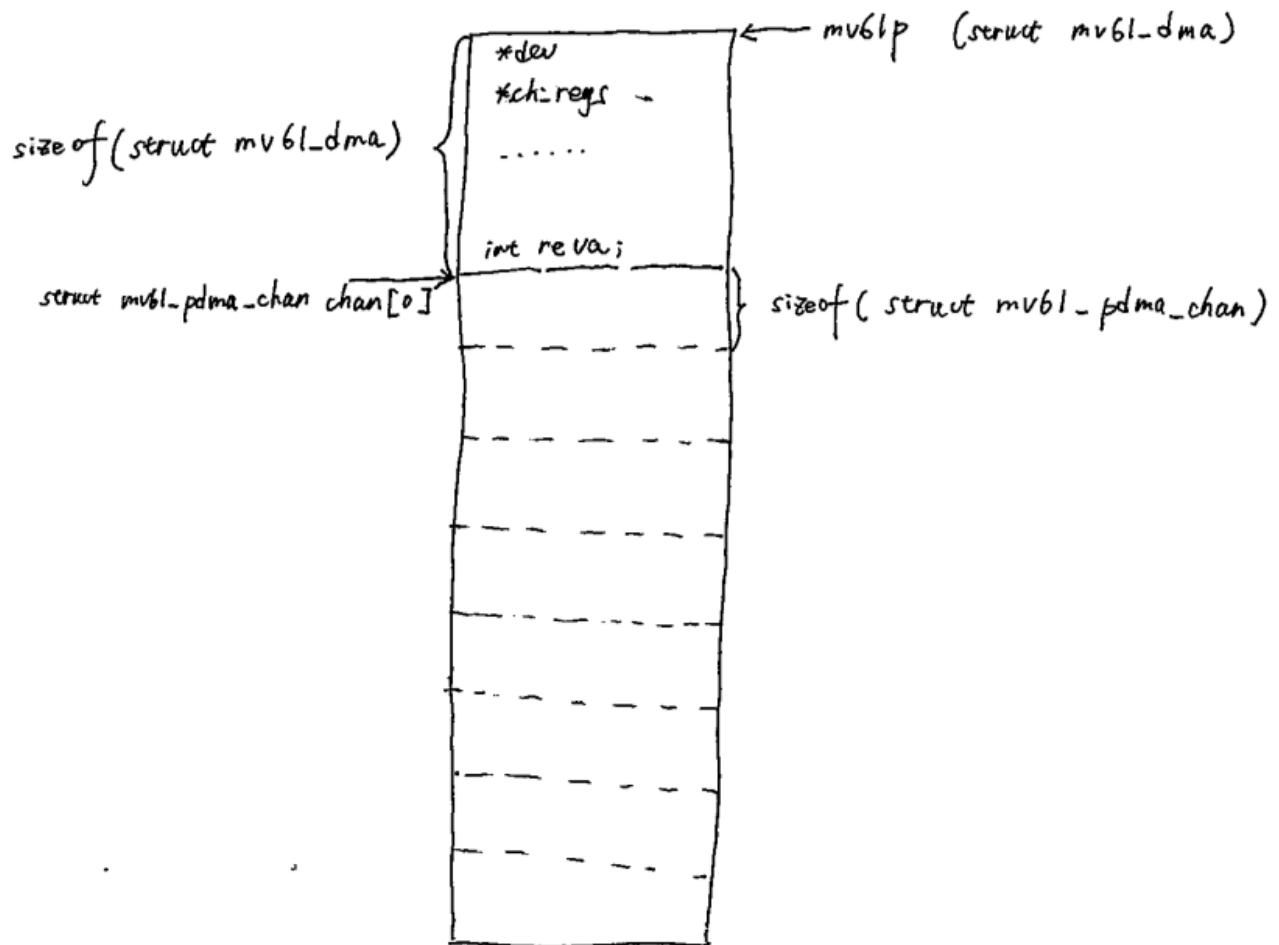 mv61p (struct mv61_dma)
*dev
*ch_regs
......
sizeof(struct mv61_dma)
int reva;
struct mv61_pdma_chan chan[0]
sizeof( struct mv61_pdma_chan)